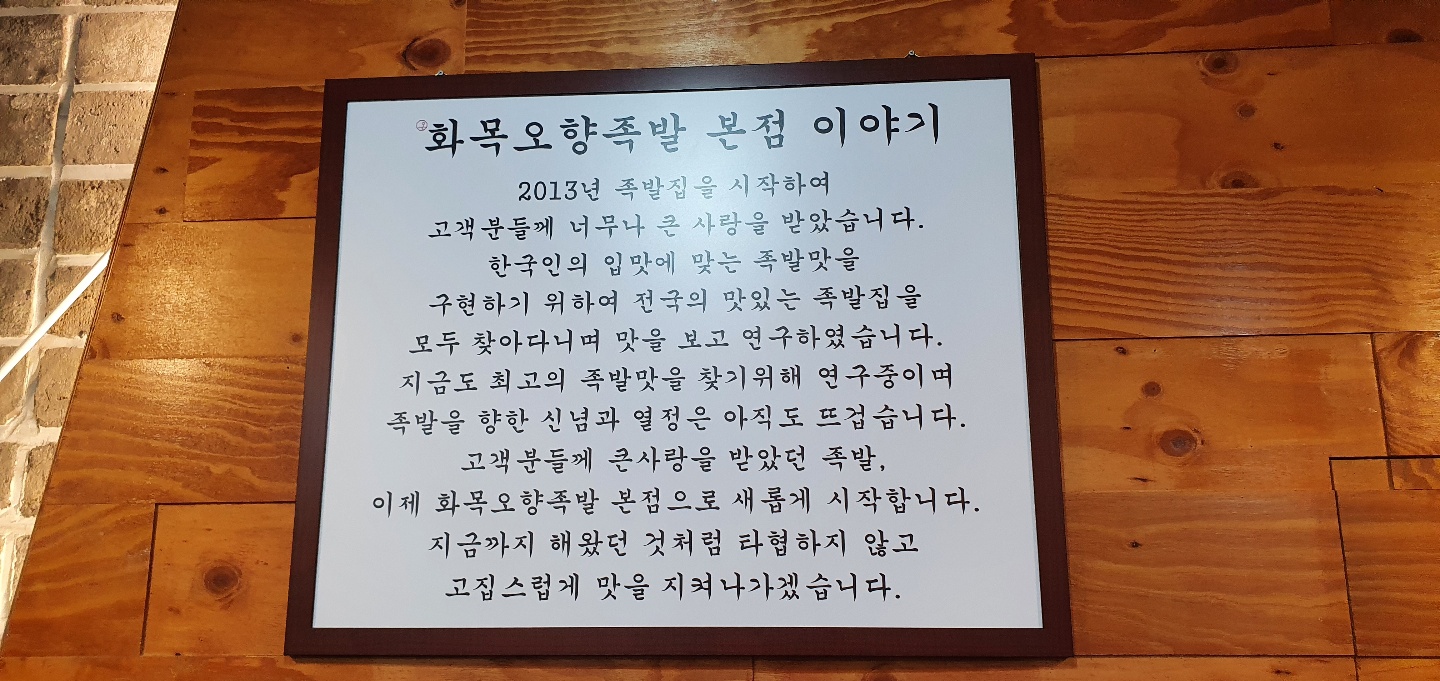 화목오향족발 본점 이야기
2013년 족발집을 시작하여
고객분들께 너무나 큰 사랑을 받았습니다.
한국인의 입맛에 맞는 족발맛을
구현하기 위하여 전국의 맛있는 족발집을
모두 찾아다니며 맛을 보고 연구하였습니다.
지금도 최고의 족발맛을 찾기위해 연구중이며
족발을 향한 신념과 열정은 아직도 뜨겁습니다.
고객분들께 큰사랑을 받았던 족발,
이제 화목오향족발 본점으로 새롭게 시작합니다.
지금까지 해왔던 것처럼 타협하지 않고
고집스럽게 맛을 지켜나가겠습니다.